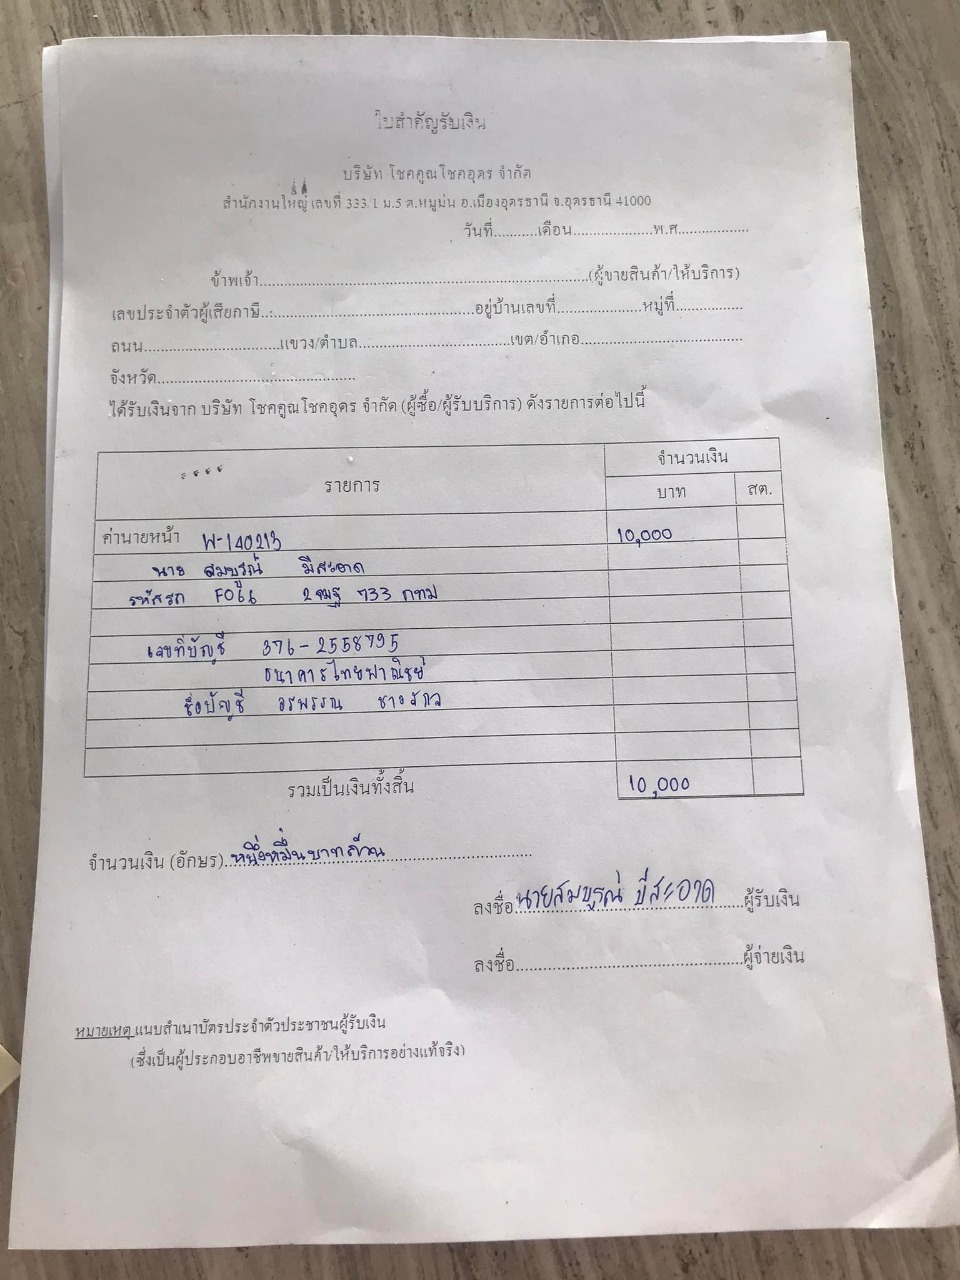 ใบสำคัญรับเงิน
บริษัท โชคคูณโชคอุดร จำกัด
สำนักงานใหญ่ เลขที่ 333/1 ม.5 ต.หมูม่น อ.เมืองอุดรธานี จ.อุดรธานี 41000
วันที่...........เดือน....................พ.ศ.................
ข้าพเจ้า...................................................................................(ผู้ขายสินค้า/ให้บริการ)
เลขประจำตัวผู้เสียภาษี..:...................................................อยู่บ้านเลขที่.....................หมู่ที่................
ถนน.................................แขวง/ตำบล.....................................เขต/อำเภอ.......................................
จังหวัด.................................................
ได้รับเงินจาก บริษัท โชคคูณโชคอุดร จำกัด (ผู้ซื้อ/ผู้รับบริการ) ดังรายการต่อไปนี้
รายการ จำนวนเงิน
บาท สต.
ค่านายหน้า W-140213 10,000
นาย สมบูรณ์ มีสะอาด
รหัสรถ F066 733 กทม
เลขที่บัญชี 376-2558795
ธนาคารไทยพาณิชย์
ชื่อบัญชี อรพรรณ
รวมเป็นเงินทั้งสิ้น 10,000
จำนวนเงิน (อักษร).หนึ่งหมื่นบาทถ้วน
ลงชื่อ นายสมบูรณ์ มีสะอาด ผู้รับเงิน
ลงชื่อ......................................................ผู้จ่ายเงิน
หมายเหตุ แนบสำเนาบัตรประจำตัวประชาชนผู้รับเงิน
(ซึ่งเป็นผู้ประกอบอาชีพขายสินค้า/ให้บริการอย่างแท้จริง)